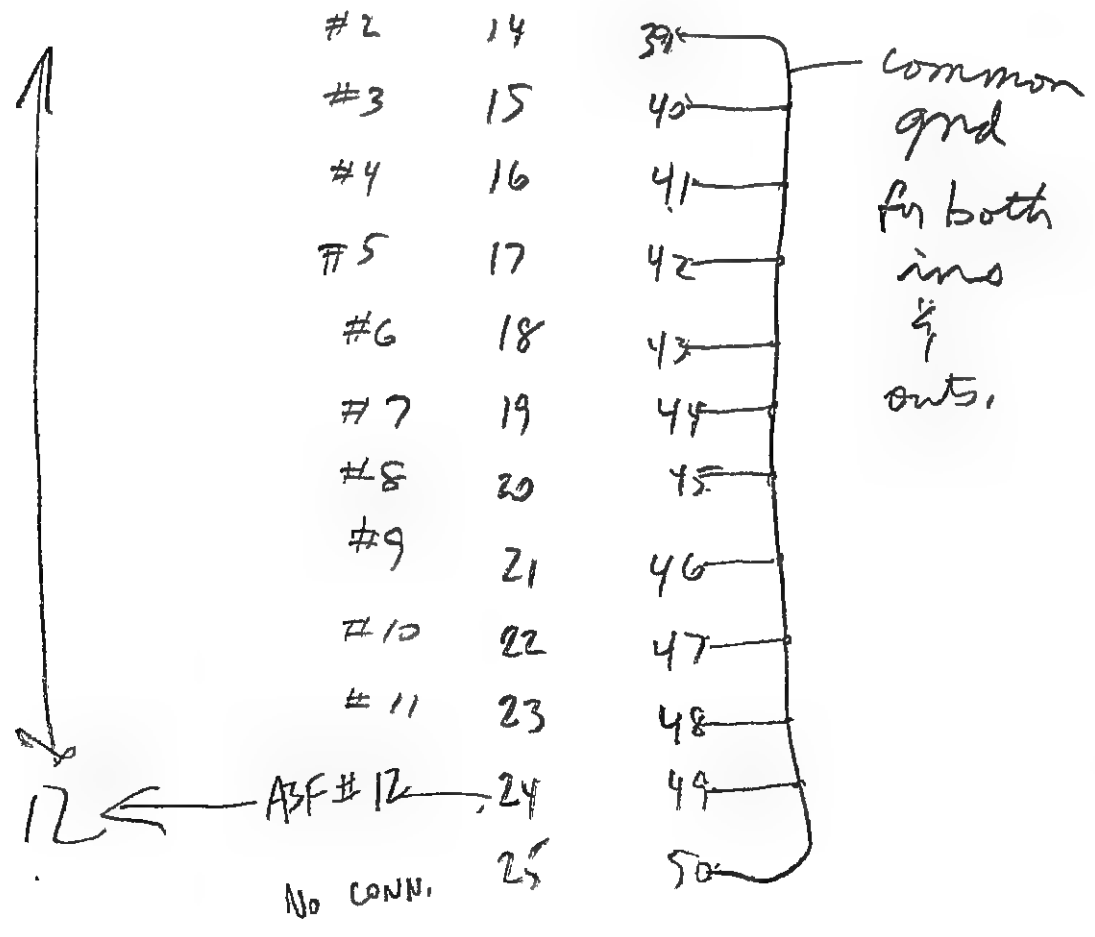 #2 14 39
#3 15 40
#4 16 41
#5 17 42
#6 18 43
#7 19 44
#8 20 45
#9 21 46
#10 22 47
#11 23 48
12 ABF #12 24 49
No CONN. 25 50
common
gnd
for both
ins
&
outs.